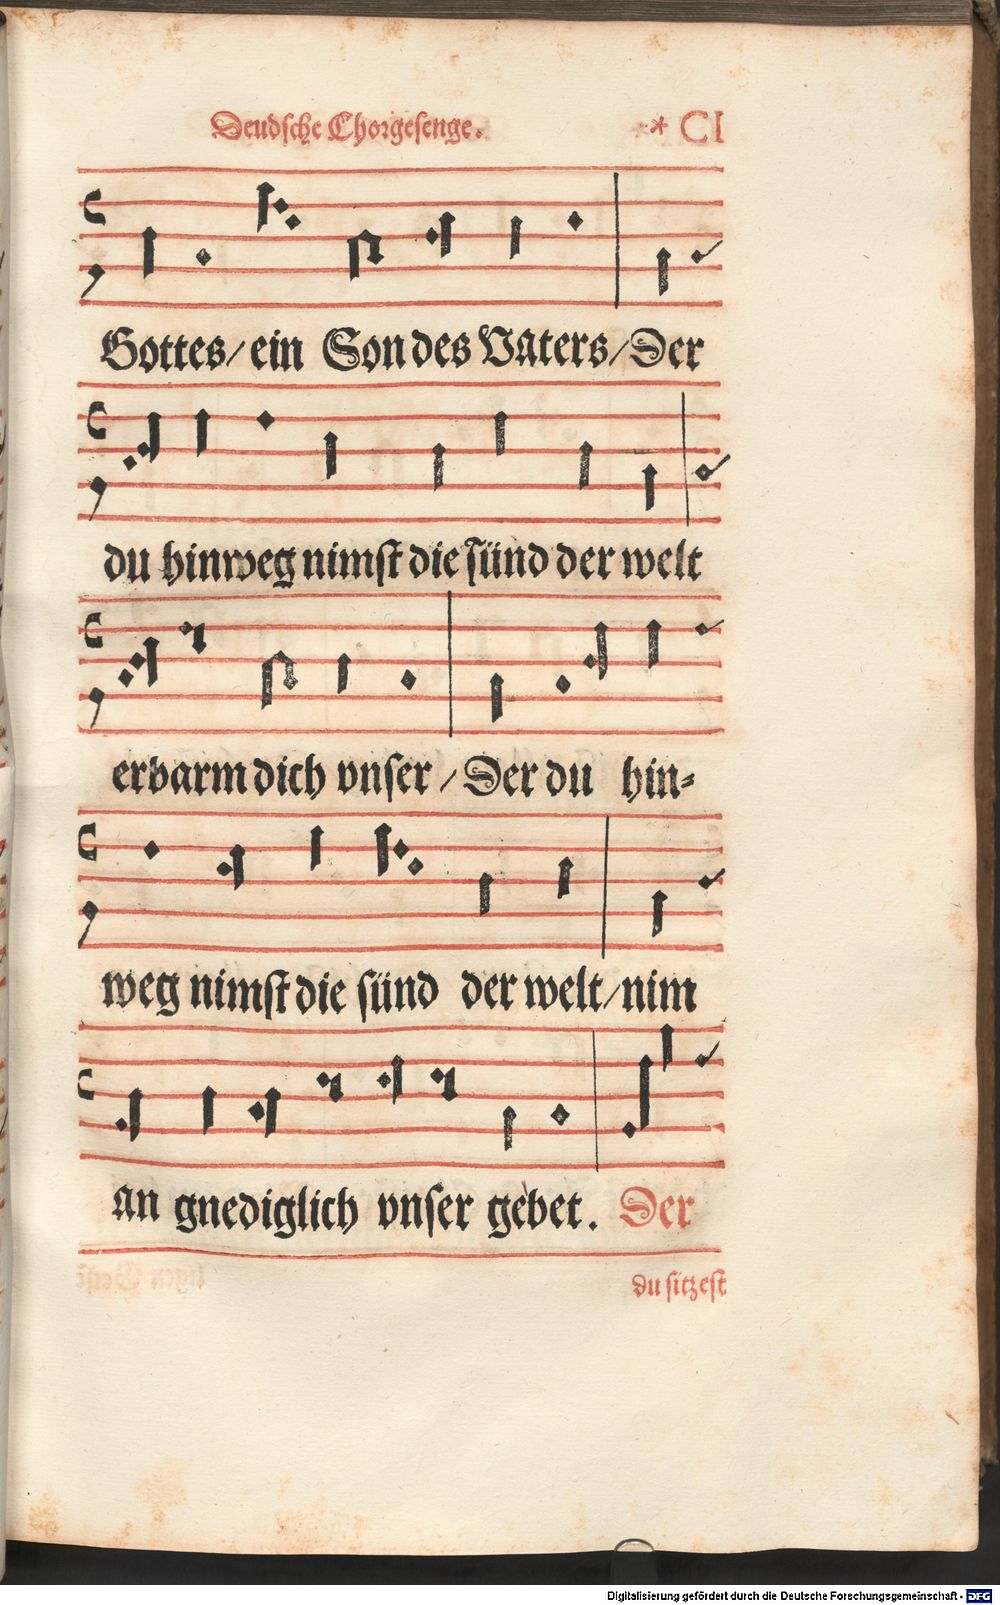 Deudsche Chorgesenge. * CI
Gottes/ ein Son des Vaters/ Der
du hinweg nimst die sünd der welt
erbarm dich vnser / Der du hin⸗
weg nimst die sünd der welt/ nim
an gnediglich vnser gebet. Der
du sitzest
Digitalisierung gefördert durch die Deutsche Forschungsgemeinschaft - DFG